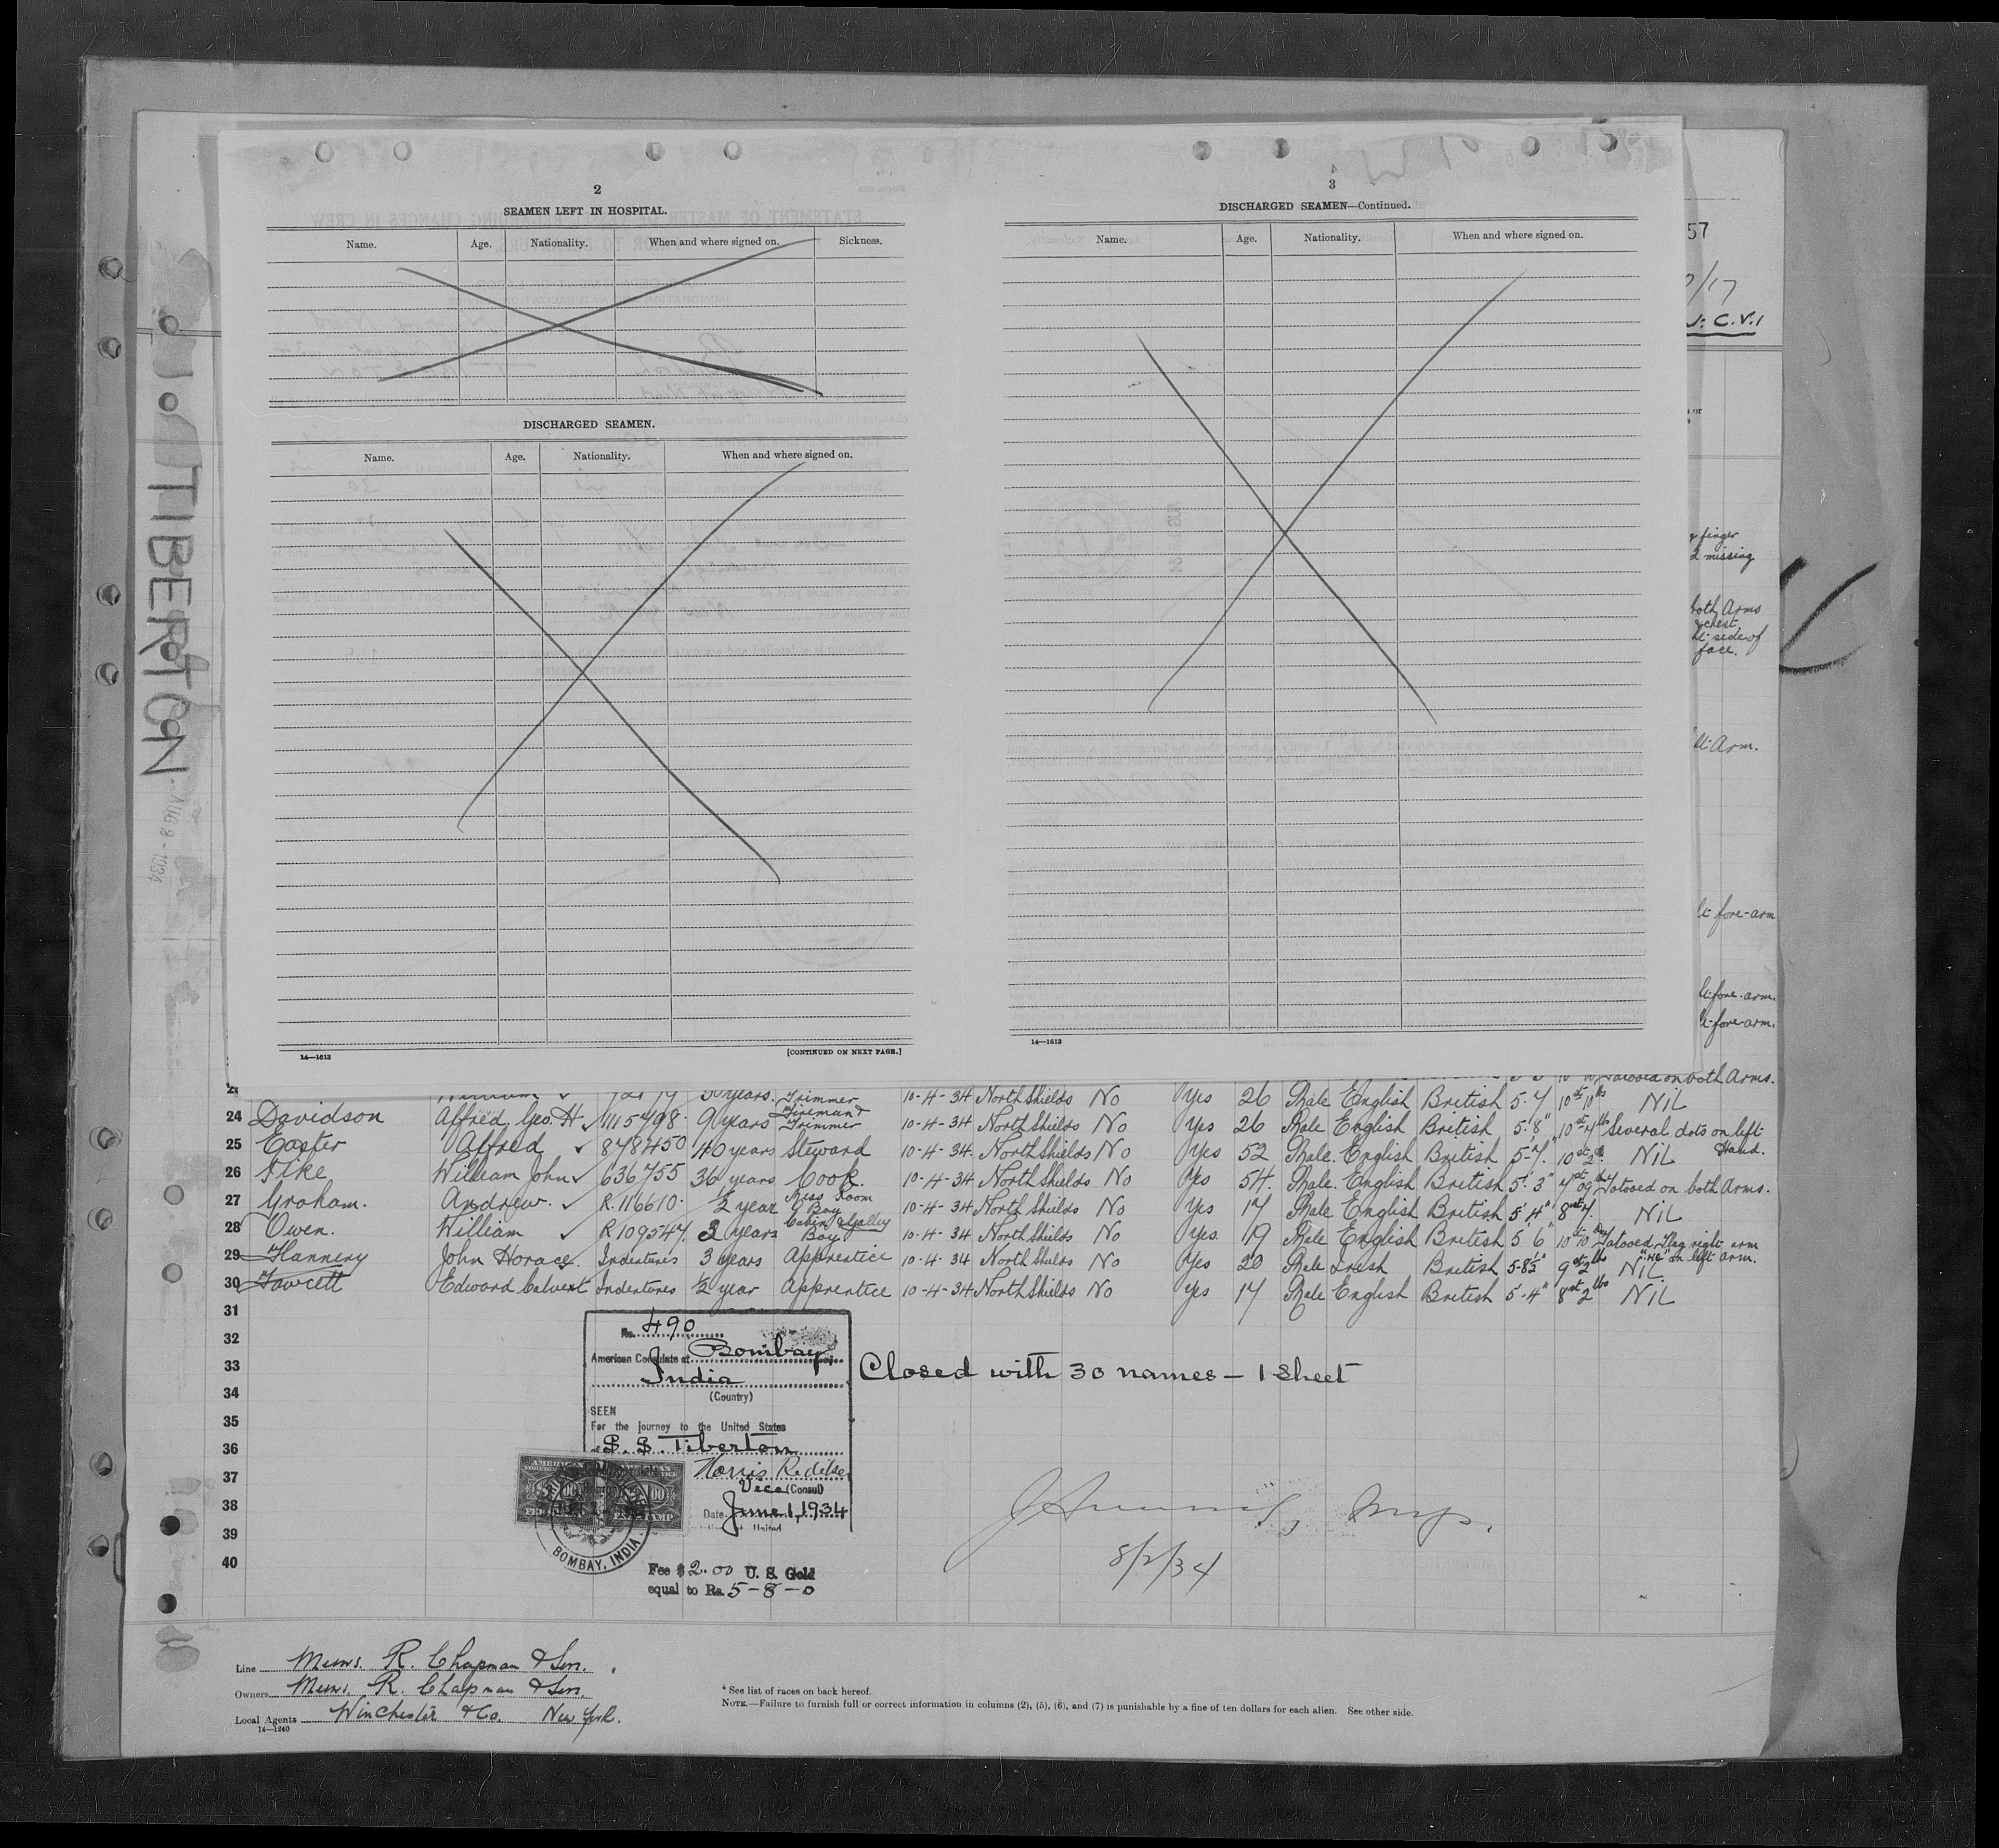 2
SEAMEN LEFT IN HOSPITAL.
Name. Age. Nationality. When and where signed on. Sickness.
DISCHARGED SEAMEN.
Name. Age. Nationality. When and where signed on.
14—1613
[CONTINUED ON NEXT PAGE.]
3
DISCHARGED SEAMEN—Continued.
Name. Age. Nationality. When and where signed on.
14—1613
57
/17
C.V.1
finger
2 missing
both Arms
& chest
side of
face.
Arm.
fore-arm
fore-arm.
fore-arm.
TIBERTON
AUG 8 - 1934
Tatooed on both Arms.
years. Trimmer 10-4-34 North Shields No Yes 26 Male English British 5-7 10st 10lbs Nil
24 Davidson Alfred Geo. H. 1115498 9 years Fireman & Trimmer 10-4-34 North Shields No Yes 26 Male English British 5-8" Several dots on left Hand.
25 Easter Alfred 878450 40 years Steward 10-4-34 North Shields No Yes 52 Male English British 5-7" Nil
26 William John 636755 36 years Cook. 10-4-34 North Shields No Yes 54. Male English British 5'3" Tatooed on both Arms.
27 Graham. Andrew. R.116610 ½ year Mess Room Boy 10-4-34 North Shields No Yes 17 Male English British 5'4" Nil
28 Owen. William R109547 3 years Cabin & Galley Boy 10-4-34 North Shields No Yes. 19 Male English British 5'6" Tatooed Flag right arm on left arm.
29 Flannery John Horace. Indentures 3 years Apprentice 10-4-34 North Shields No Yes 20 Male Irish British 5-8½" 9st 2lbs Nil
30 Fawcett Edward Calvert Indentures ½ year Apprentice 10-4-34 North Shields No Yes 17 Male English British 5'-4" 8st 2lbs Nil
31
32
33
34
35
36
37
38
39
40
No. 490
American Consulate at Bombay,
India
(Country)
SEEN
For the journey to the United States
of S.S. Tiberton
Vice (Consul)
Date June 1, 1934
BOMBAY, INDIA
Fee $2.00 U.S. Gold
equal to Rs. 5-8-0
Closed with 30 names – 1 sheet
8/2/34
Line Messrs. R. Chapman & Son.
Owners Messrs. R. Chapman & Son.
Local Agents Winchester & Co. New York.
14—1240
* See list of races on back hereof.
NOTE.—Failure to furnish full or correct information in columns (2), (5), (6), and (7) is punishable by a fine of ten dollars for each alien. See other side.